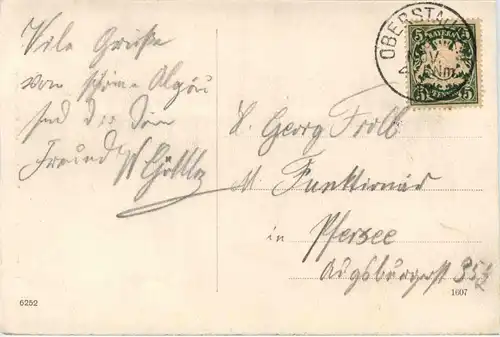 Vile Grüße
vom schöne Algäu
send dir dein
Freund W Göttle
OBERSTAU
Nm.
5 BAYERN 5
5 5
H. Georg Frolb
Funktionär
in Pfersee
Augsburgerst 35½
6252
1607